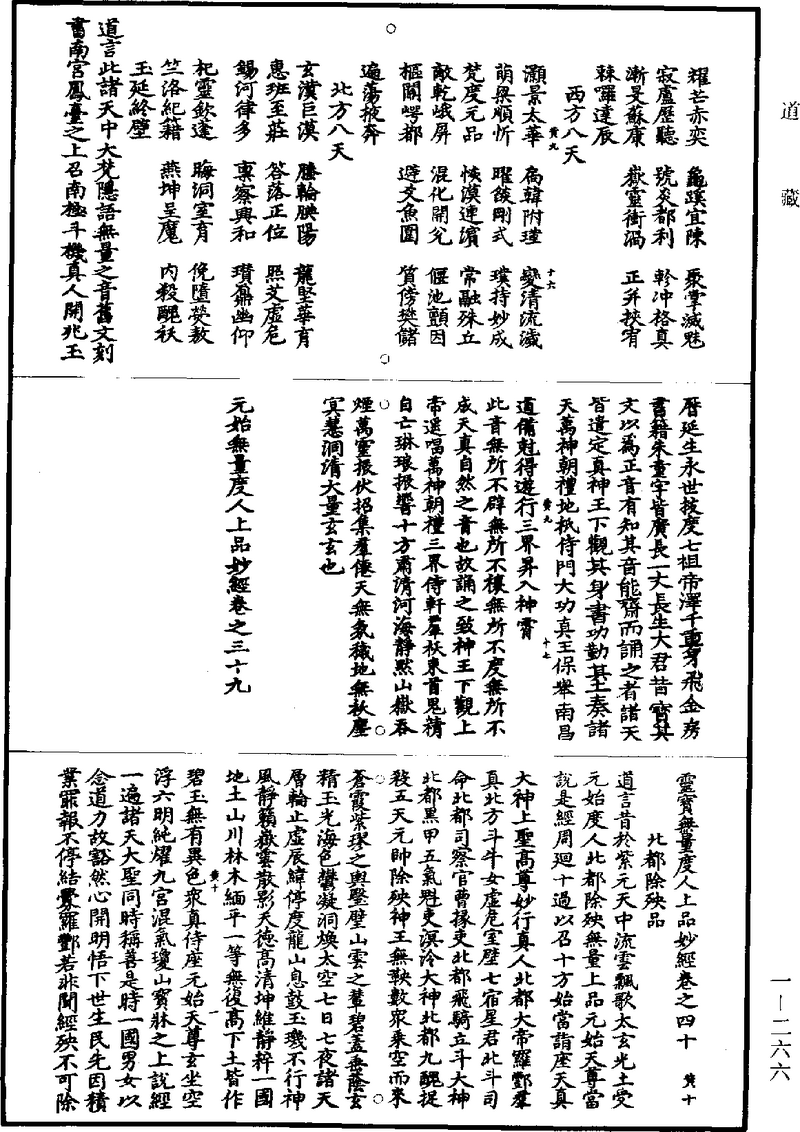 道藏
耀芒赤奕 龜蹊宜陳 聚掌滅魅
寂盧歷聽 號炎都利 軫冲格真
漸旻蘇康 嶽靈衝渦 正并挾宥
棘囉達辰
西方八天
灝景太華 扃韓附瑾 變清流濊
萌梁順忻 曜錟剛式 璞持妙成
梵度元品 恢漠連濵 常融殊立
敵乾峨屏 混化開兊 偃池顫因
樞闢崿都 避爻魚圓 質傍樊儲
遍蕩掖奔
北方八天
玄漢巨漠 騰輪腴陽 龍堅華育
惠班至莊 答落正位 照芝虛危
錫河律多 禀察興和 瓚鼐幽仰
杞靈欽蓬 晦洞室育 俛隨熒敖
竺洛紀籍 燕坤呈魔 内殺醜袄
玉延終壁
道言此諸天中大梵隱語無量之音舊文刻
書南宫鳳臺之上召南極斗機真人開兆玉
曆延生永世拔度七祖帝澤千重身飛金房
書籍朱童字皆廣長一丈長生大君昔寶其
文以為正音有知其音能齋而誦之者諸天
皆遣定真神王下觀其身書功勤其上奏諸
天萬神朝禮地祇侍門大功真王保舉南昌
道備尅得遊行三界昇入神霄
此音無所不辟無所不禳無所不度無所不
成天真自然之音也故誦之致神王下觀上
帝遥唱萬神朝禮三界侍軒羣袄束首鬼精
自亡琳琅振響十方肅清河海靜默山嶽吞
煙萬靈振伏招集羣僊天無氛穢地無袄塵
冥慧洞清大量玄玄也
元始無量度人上品妙經卷之三十九
靈寶無量度人上品妙經卷之四十 黄十
北都除殃品
道言昔於紫元天中流雲飄歌太玄光土受
元始度人北都除殃無量上品元始天尊當
說是經周迴十過以召十方始當詣座天真
大神上聖高尊妙行真人北都大帝羅酆羣
真北方斗牛女虛危室壁七宿星君北斗司
命北都司察官曹掾吏北都飛騎立斗大神
北都黑甲五氣魁吏溟泠大神北都九醜捉
殺五天元帥除殃神王無鞅數衆乘空而來
蒼霞紫瑮之輿鑿壁山雲之輦碧蓋垂蔭玄
精玉光海色鬱凝洞煥太空七日七夜諸天
層輪止虛辰緯停度龍山息鼓玉璣不行神
風靜籟嶽雲散影天德高清坤維靜粹一國
地土山川林木緬平一等無復高下土皆作
碧玉無有異色衆真侍座元始天尊玄坐空
浮六明純燿九宫混氣瓊山寶牀之上說經
一遍諸天大聖同時稱善是時一國男女以
念道力故豁然心開明悟下世生民先因積
業罪報不停結釁羅酆若非聞經殃不可除
一—二六六